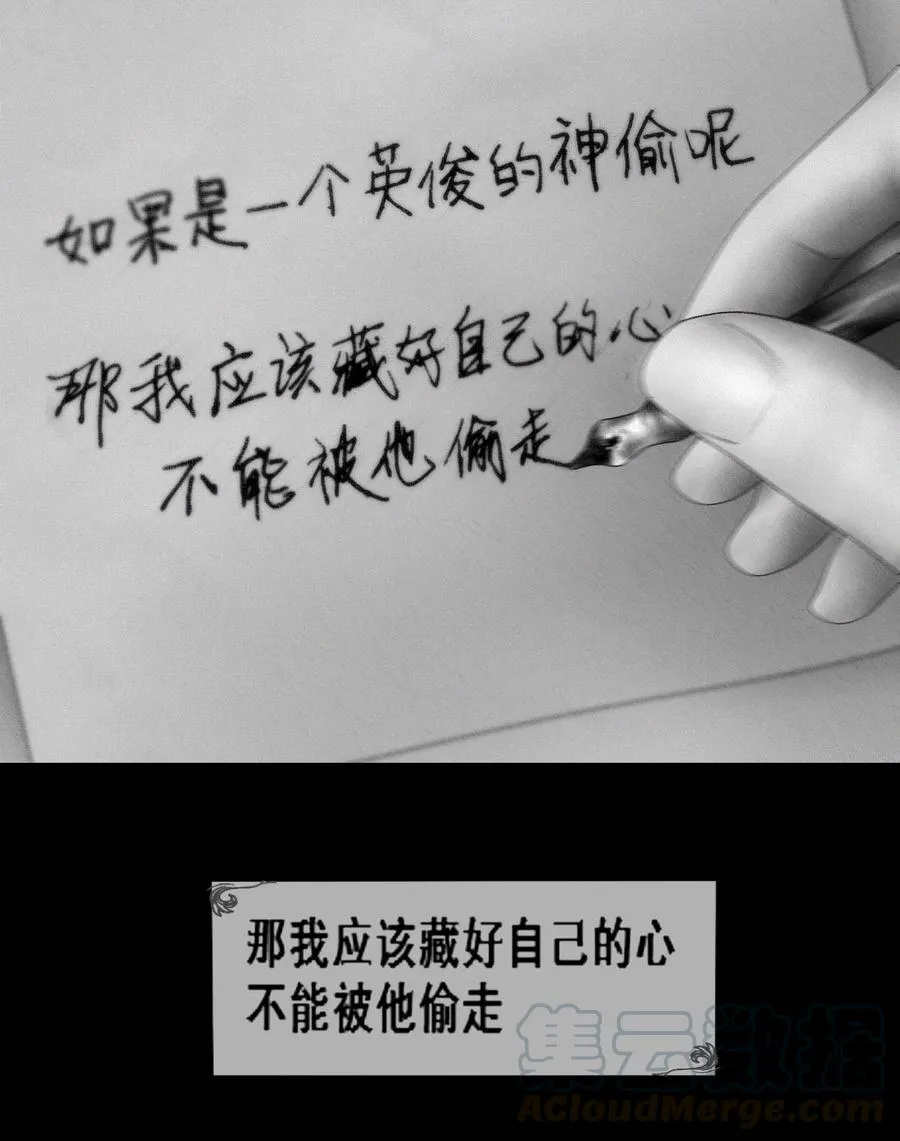 如果是一个英俊的神偷呢
那我应该藏好自己的心
不能被他偷走
那我应该藏好自己的心
不能被他偷走
集云数据
ACloudMerge.com